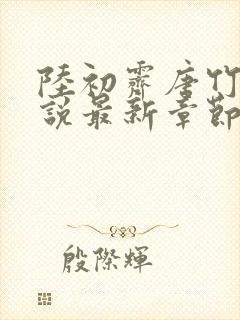 陸初霽唐竹
說最新章節
殷際輝